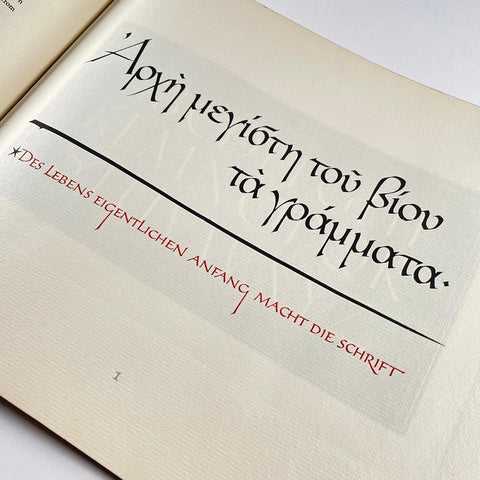 rom
Ἀρχὴ μεγίστη τοῦ βίου
τὰ γράμματα·
*DES LEBENS EIGENTLICHEN ANFANG MACHT DIE SCHRIFT
1